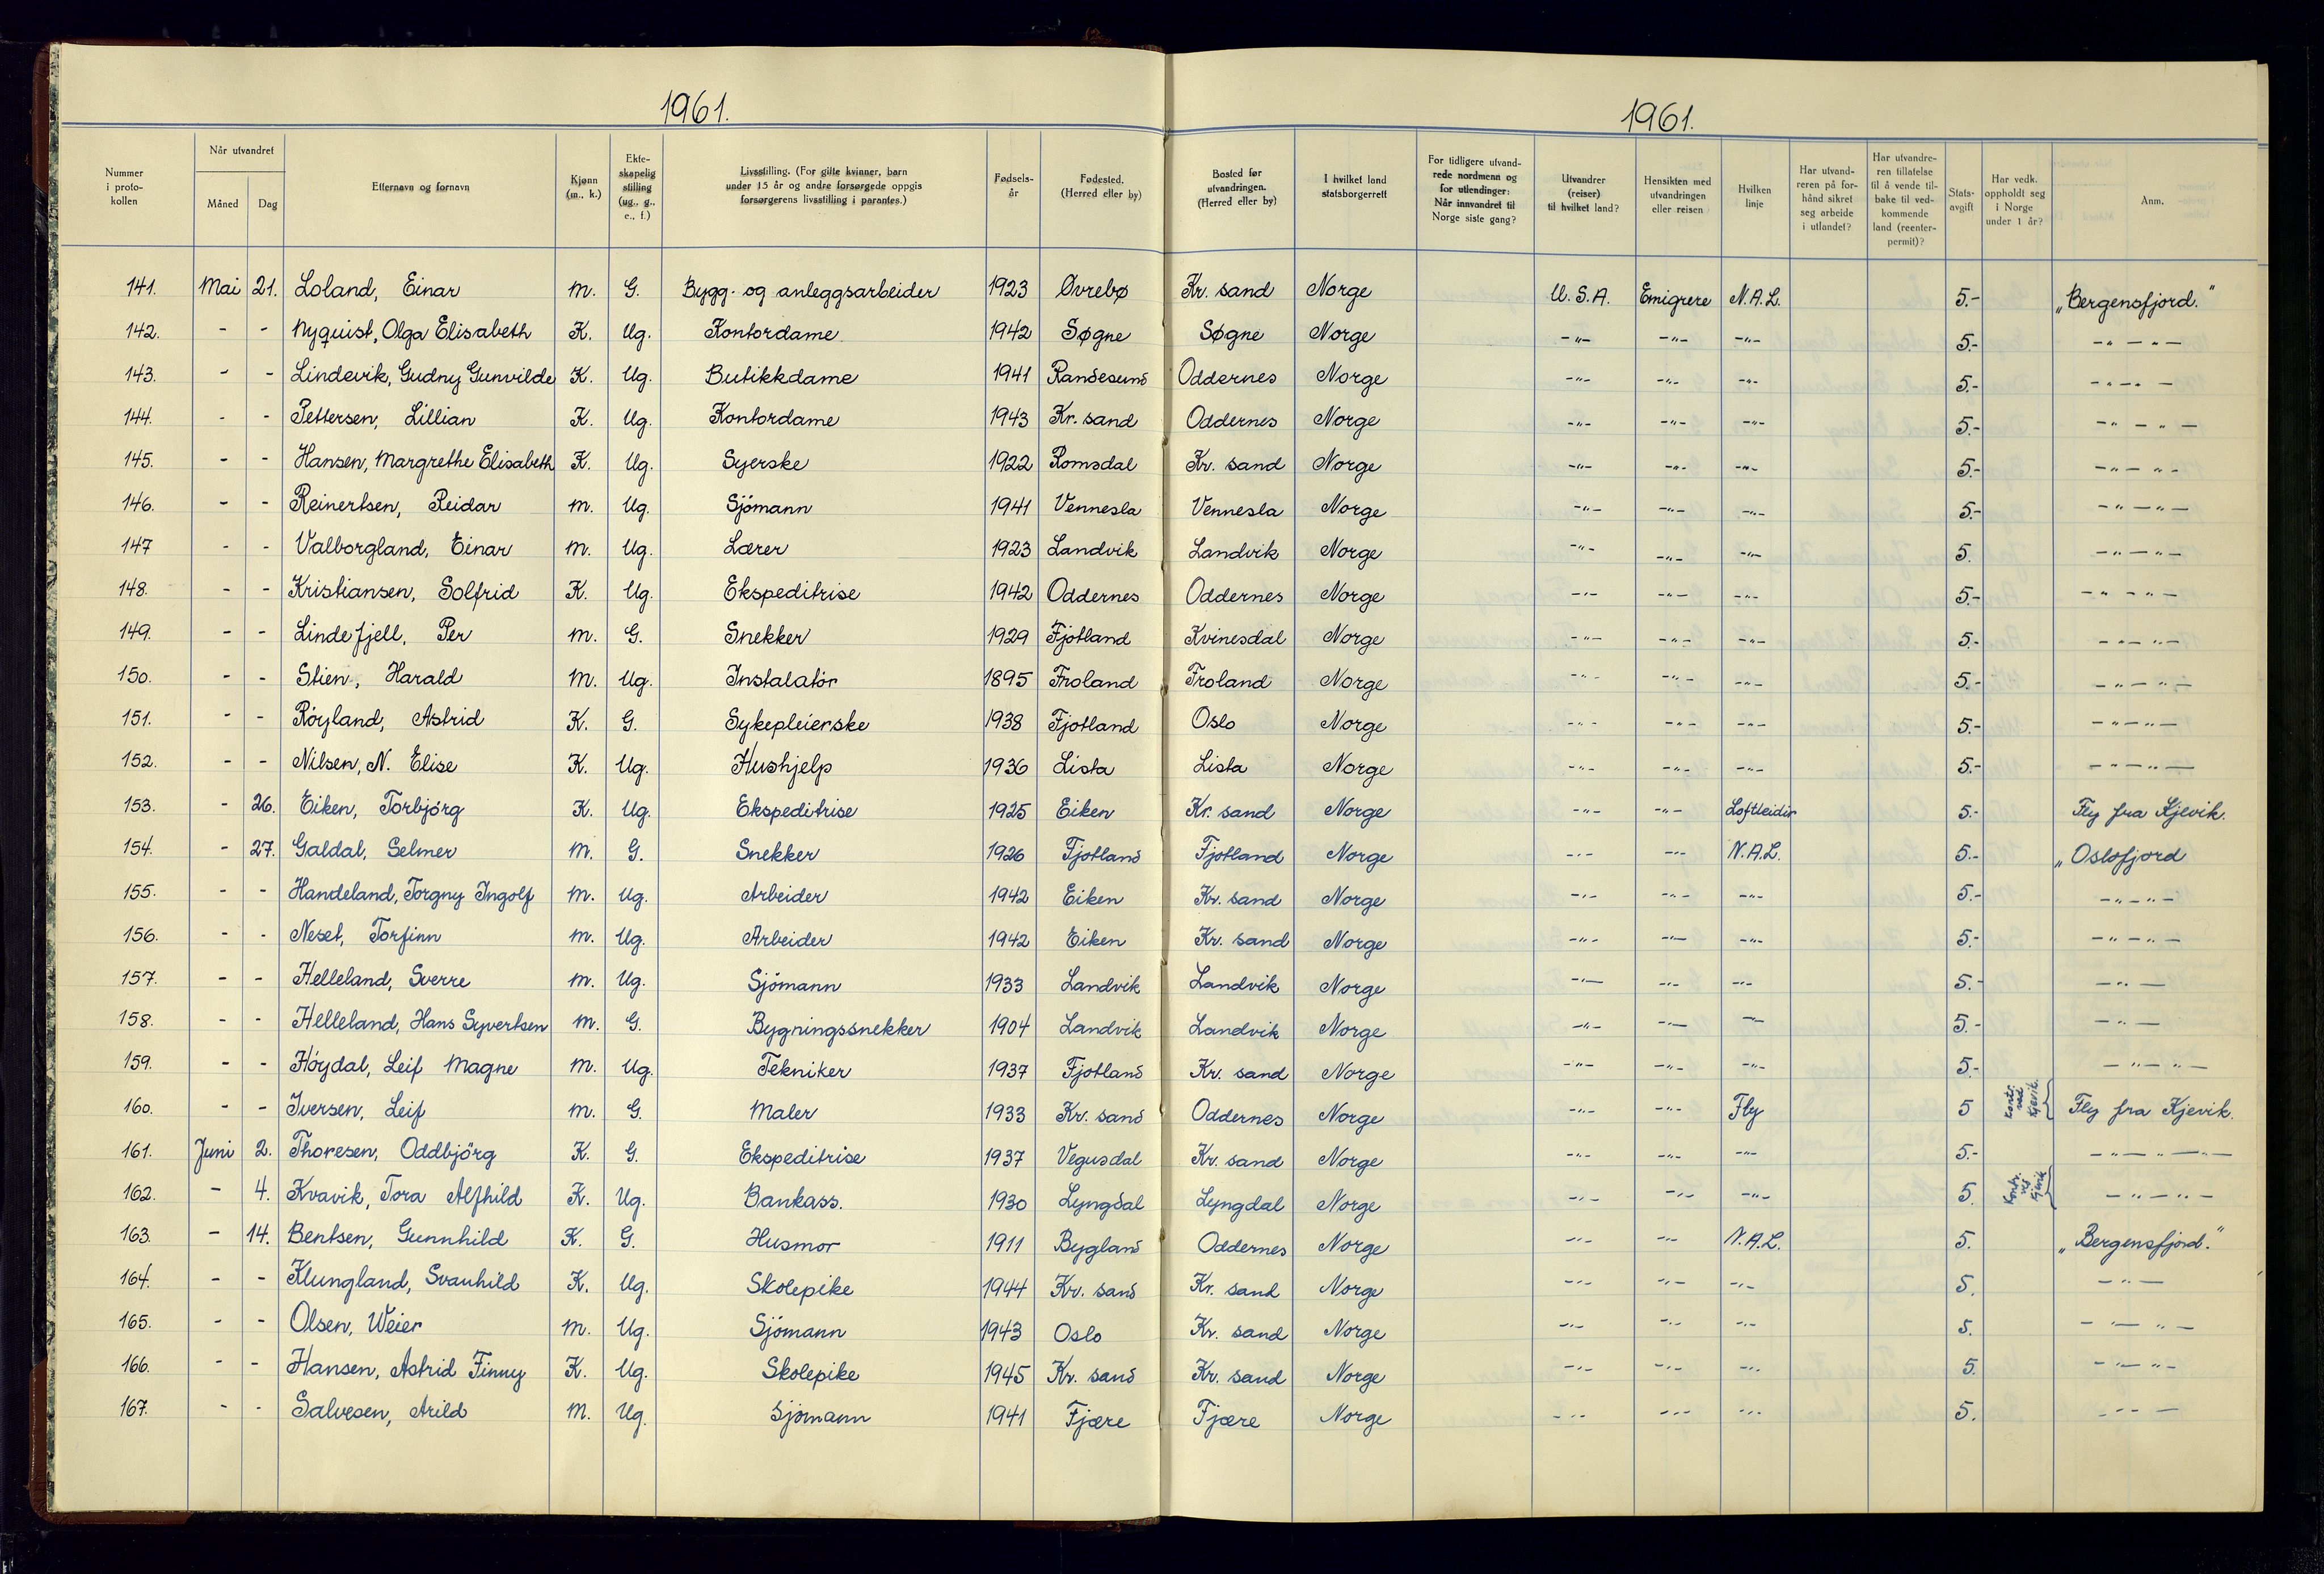 1961. 1961.
Nummer i protokollen | Når utvandret: Måned | Dag | Etternavn og fornavn | Kjønn (m., k.) | Ekteskapelig stilling (ug., g., e., f.) | Livsstilling. (For gifte kvinner, barn under 15 år og andre forsørgede oppgis forsørgerens livsstilling i parantes.) | Fødselsår | Fødested. (Herred eller by) | Bosted før utvandringen. (Herred eller by) | I hvilket land statsborgerrett | For tidligere utvandrede nordmenn og for utlendinger: Når innvandret til Norge siste gang? | Utvandrer (reiser) til hvilket land? | Hensikten med utvandringen eller reisen | Hvilken linje | Har utvandreren på forhånd sikret seg arbeide i utlandet? | Har utvandreren tillatelse til å vende tilbake til vedkommende land (reenterpermit)? | Statsavgift | Har vedk. oppholdt seg i Norge under 1 år? | Anm.
141. Mai 21. Loland, Einar m. G. Bygg- og anleggsarbeider 1923 Øvrebø Kr. sand Norge U.S.A. Emigrere N.A.L. 5.- „Bergensfjord."
142. - - Nyquist, Olga Elisabeth K. Ug. Kontordame 1942 Søgne Søgne Norge -"- -"- -"- 5.- -"-"-
143. - - Lindevik, Gudny Gunvilde K. Ug. Butikkdame 1941 Randesund Oddernes Norge -"- -"- -"- 5.- -"-"-
144. - - Pettersen, Lillian K. Ug. Kontordame 1943 Kr. sand Oddernes Norge -"- -"- -"- 5.- -"-"-
145. - - Hansen, Margrethe Elisabeth K. Ug. Syerske 1922 Romsdal Kr. sand Norge -"- -"- -"- 5.- -"-"-
146. - - Reinertsen, Reidar m. Ug. Sjömann 1941 Vennesla Vennesla Norge -"- -"- -"- 5.- -"-"-
147 - - Valborgland, Einar m. Ug. Lærer 1923 Landvik Landvik Norge -"- -"- -"- 5. -"-"-
148. - - Kristiansen, Solfrid K. Ug. Ekspeditrise 1942 Oddernes Oddernes Norge -"- -"- -"- 5.- -"-"-
149. - - Lindefjell, Per m. G. Snekker 1929 Fjotland Kvinesdal Norge -"- -"- -"- 5.- -"-"-
150. - - Stien, Harald m. Ug. Instalatör 1895 Froland Froland Norge -"- -"- -"- 5.- -"-"-
151. - - Röyland, Astrid K. G. Sykepleierske 1938 Fjotland Oslo Norge -"- -"- -"- 5.- -"-"-
152. - - Nilsen, N. Elise K. Ug. Hushjelp 1936 Lista Lista Norge -"- -"- -"- 5.- -"-"-
153. - 26. Eiken, Torbjörg K. Ug. Ekspeditrise 1925 Eiken Kr. sand Norge -"- -"- Loftleidir 5.- Fly fra Kjevik.
154. - 27. Galdal, Selmer m. G. Snekker 1926 Fjotland Fjotland Norge -"- -"- N.A.L. 5.- „Oslofjord
155. - - Handeland, Torgny Ingolf m. Ug. Arbeider 1942 Eiken Kr. sand Norge -"- -"- -"- 5.- -"-"-
156. - - Neset, Torfinn m. Ug. Arbeider 1942 Eiken Kr. sand Norge -"- -"- -"- 5.- -"-"-
157. - - Helleland, Sverre m. Ug. Sjömann 1933 Landvik Landvik Norge -"- -"- -"- 5.- -"-
158. - - Helleland, Hans Syvertsen m. G. Bygningssnekker 1904 Landvik Landvik Norge -"- -"- -"- 5.- -"-
159. - - Höydal, Leif Magne m. Ug. Tekniker 1937 Fjotland Kr. sand Norge -"- -"- -"- 5.- -"-"-
160. - - Iversen, Leif m. G. Maler 1933 Kr. sand Oddernes Norge -"- -"- Fly 5 Kontr. ved Kjevik. Fly fra Kjevik.
161. Juni 2. Thoresen, Oddbjörg K. G. Ekspeditrise 1937 Vegusdal Kr. sand Norge -"- -"- -"- 5.- -"-"-"-
162. - 4. Kvavik, Tora Alfhild K. Ug. Bankass. 1930 Lyngdal Lyngdal Norge -"- -"- -"- 5. Kontr. ved Kjevik -"-"-
163. - 14. Bentsen, Gunnhild K. G. Husmor 1911 Bygland Oddernes Norge -"- -"- N.A.L. 5. „Bergensfjord."
164. - - Klungland, Svanhild K. Ug. Skolepike 1944 Kr. sand Kr. sand Norge -"- -"- -"- 5. -"-
165. - - Olsen, Weier m. Ug. Sjömann 1943 Oslo Kr. sand Norge -"- -"- -"- 5. -"-"-
166. - - Hansen, Astrid Finny K. Ug. Skolepike 1945 Kr. sand Kr. sand Norge -"- -"- -"- 5. -"-"-
167. - - Salvesen, Arild m. Ug. Sjömann 1941 Fjære Fjære Norge -"- -"- -"- 5. -"-